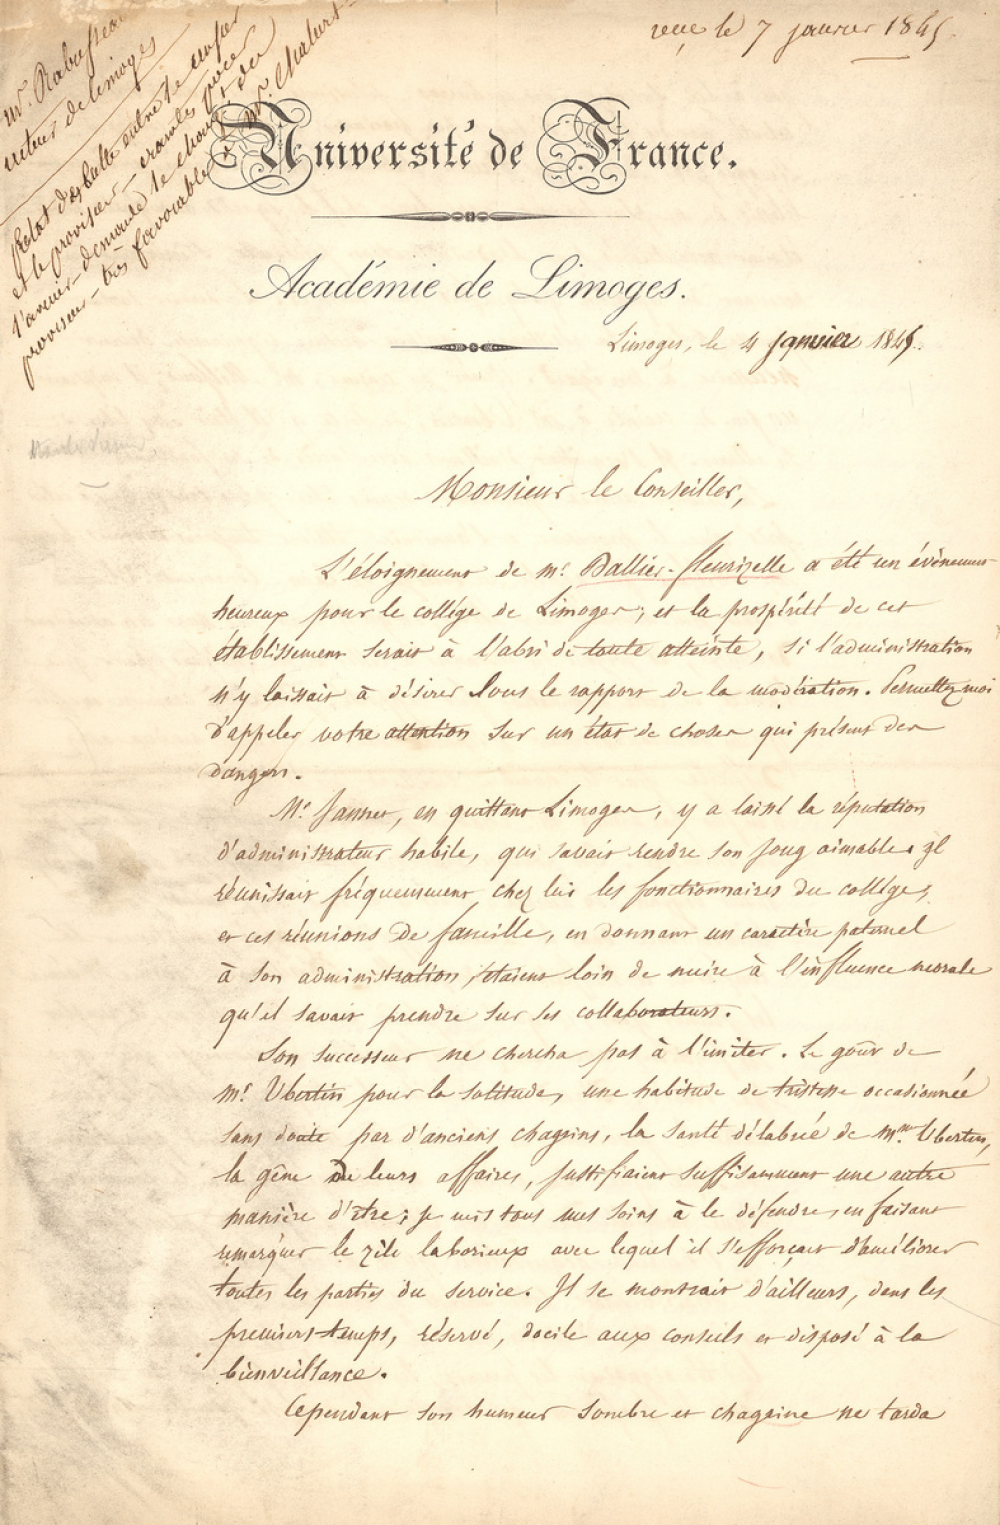 reçu le 7 janvier 1845.
Mr. Rabusseau
recteur de Limoges
Etat de lutte entre le censeur
et le proviseur — craintes pour
l'avenir — demande le choix d'un
proviseur — très favorable à Mr.
Université de France.
Académie de Limoges.
Limoges, le 4 janvier 1845.
Monsieur le Conseiller,
L'éloignement de mr. Dallier-fleurizelle a été un évènement
heureux pour le collége de Limoges; et la prospérité de cet
établissement serait à l'abri de toute atteinte, si l'administration
n'y laissait à désirer sous le rapport de la modération. Permettez-moi
d'appeler votre attention sur un état de choses qui présente des
dangers.
Mr. Jannet, en quittant Limoges, y a laissé la réputation
d'administrateur habile, qui savait rendre son joug aimable. Il
réunissait fréquemment chez lui les fonctionnaires du collége;
et ces réunions de famille, en donnant un caractère paternel
à son administration, étaient loin de nuire à l'influence morale
qu'il savait prendre sur ses collaborateurs.
Son successeur ne chercha pas à l'imiter. Le goût de
mr. Ubertin pour la solitude, une habitude de tristesse occasionnée
sans doute par d'anciens chagrins, la santé délabrée de Mme. Ubertin,
la gêne de leurs affaires, justifiaient suffisamment une autre
manière d'être; je mis tous mes soins à le défendre, en faisant
remarquer le zèle laborieux avec lequel il s'efforçait d'améliorer
toutes les parties du service. Il se montrait d'ailleurs, dans les
premiers temps, réservé, docile aux conseils et disposé à la
bienveillance.
Cependant son humeur sombre et chagrine ne tarda